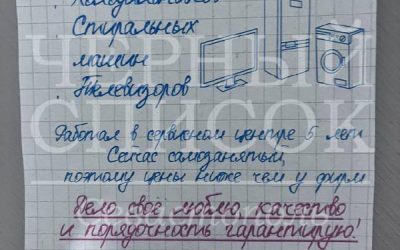 Холодильников
Стиральных
машин
Телевизоров
Работал в сервисном центре 5 лет
Сейчас самозанятый,
поэтому цены ниже чем у фирм
Дело своё люблю, качество
и порядочность гарантирую!
ЧЕРНЫЙ
СПИСОК